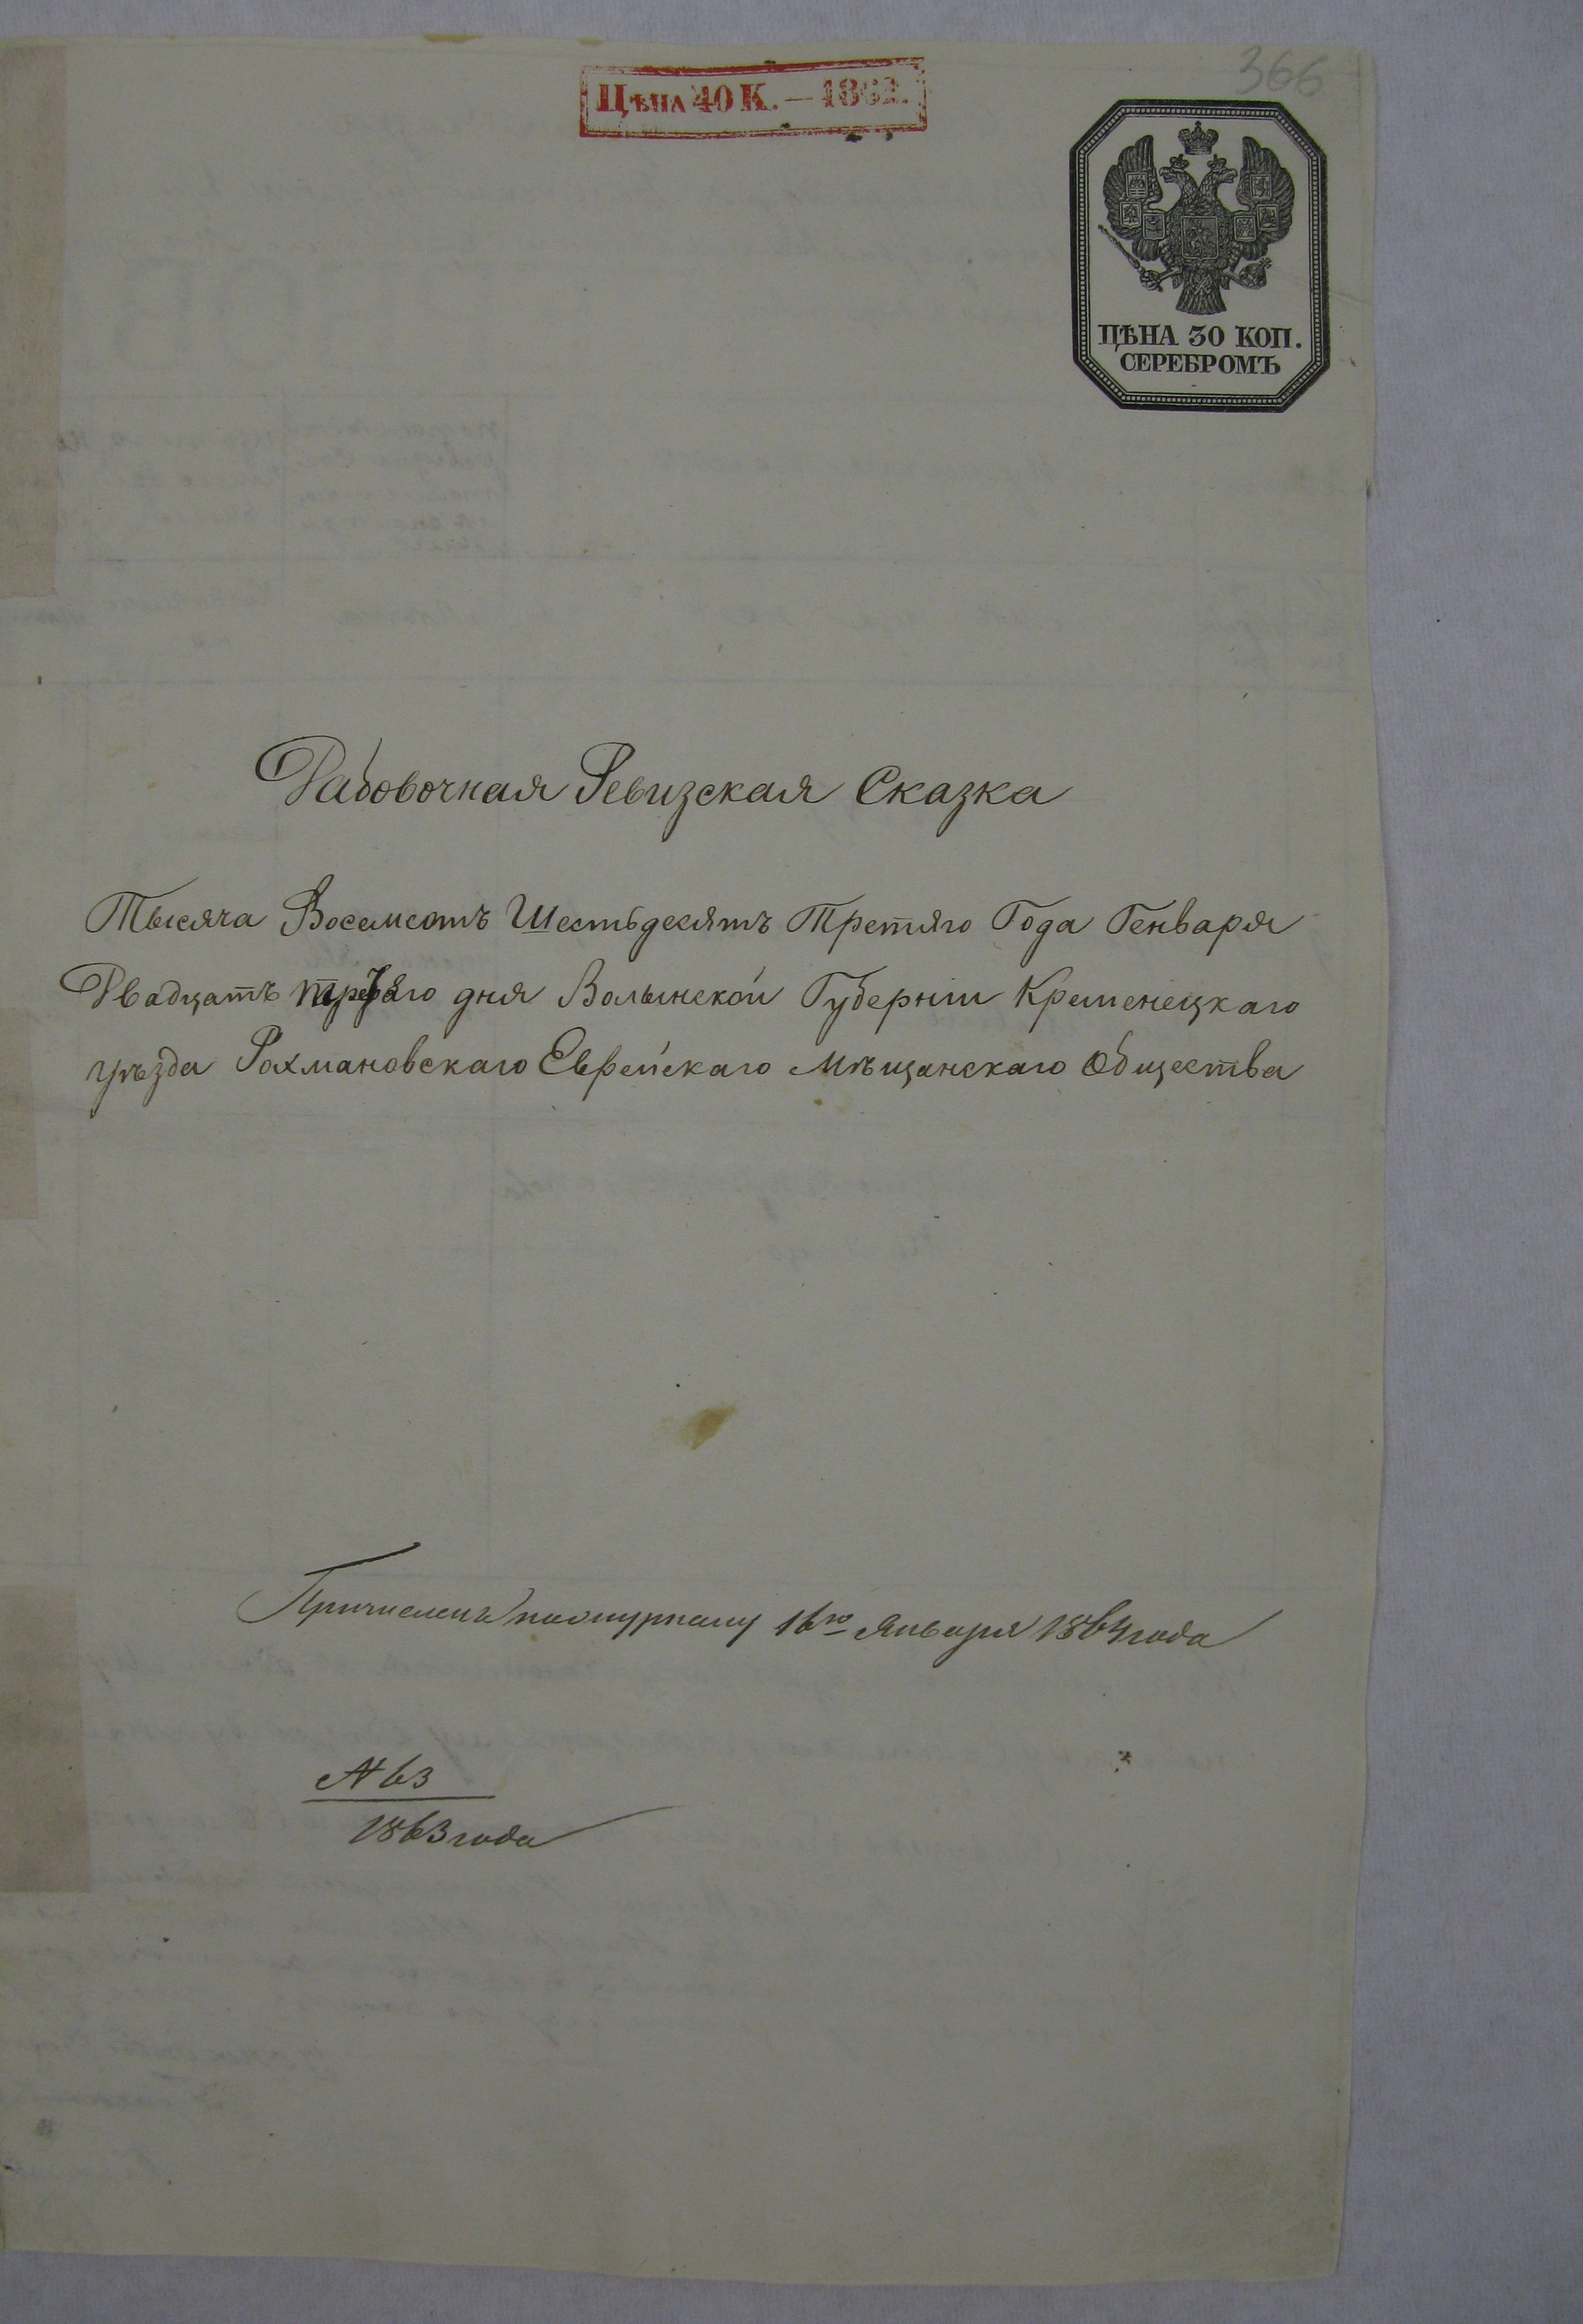 366
Цѣна 40 К. — 1862.
ЦѢНА 30 КОП.
СЕРЕБРОМЪ
Рабовочная Ревизская Сказка
Тысяча Восемсотъ Шестьдесятъ Третяго Года Генваря
Двадцать третяго дня Волынской Губерніи Кременецкаго
уѣзда Рахмановскаго Еврейскаго Мѣщанскаго Общества
Причисленъ по журналу 16го Января 1864 года
№ 63
1863 года